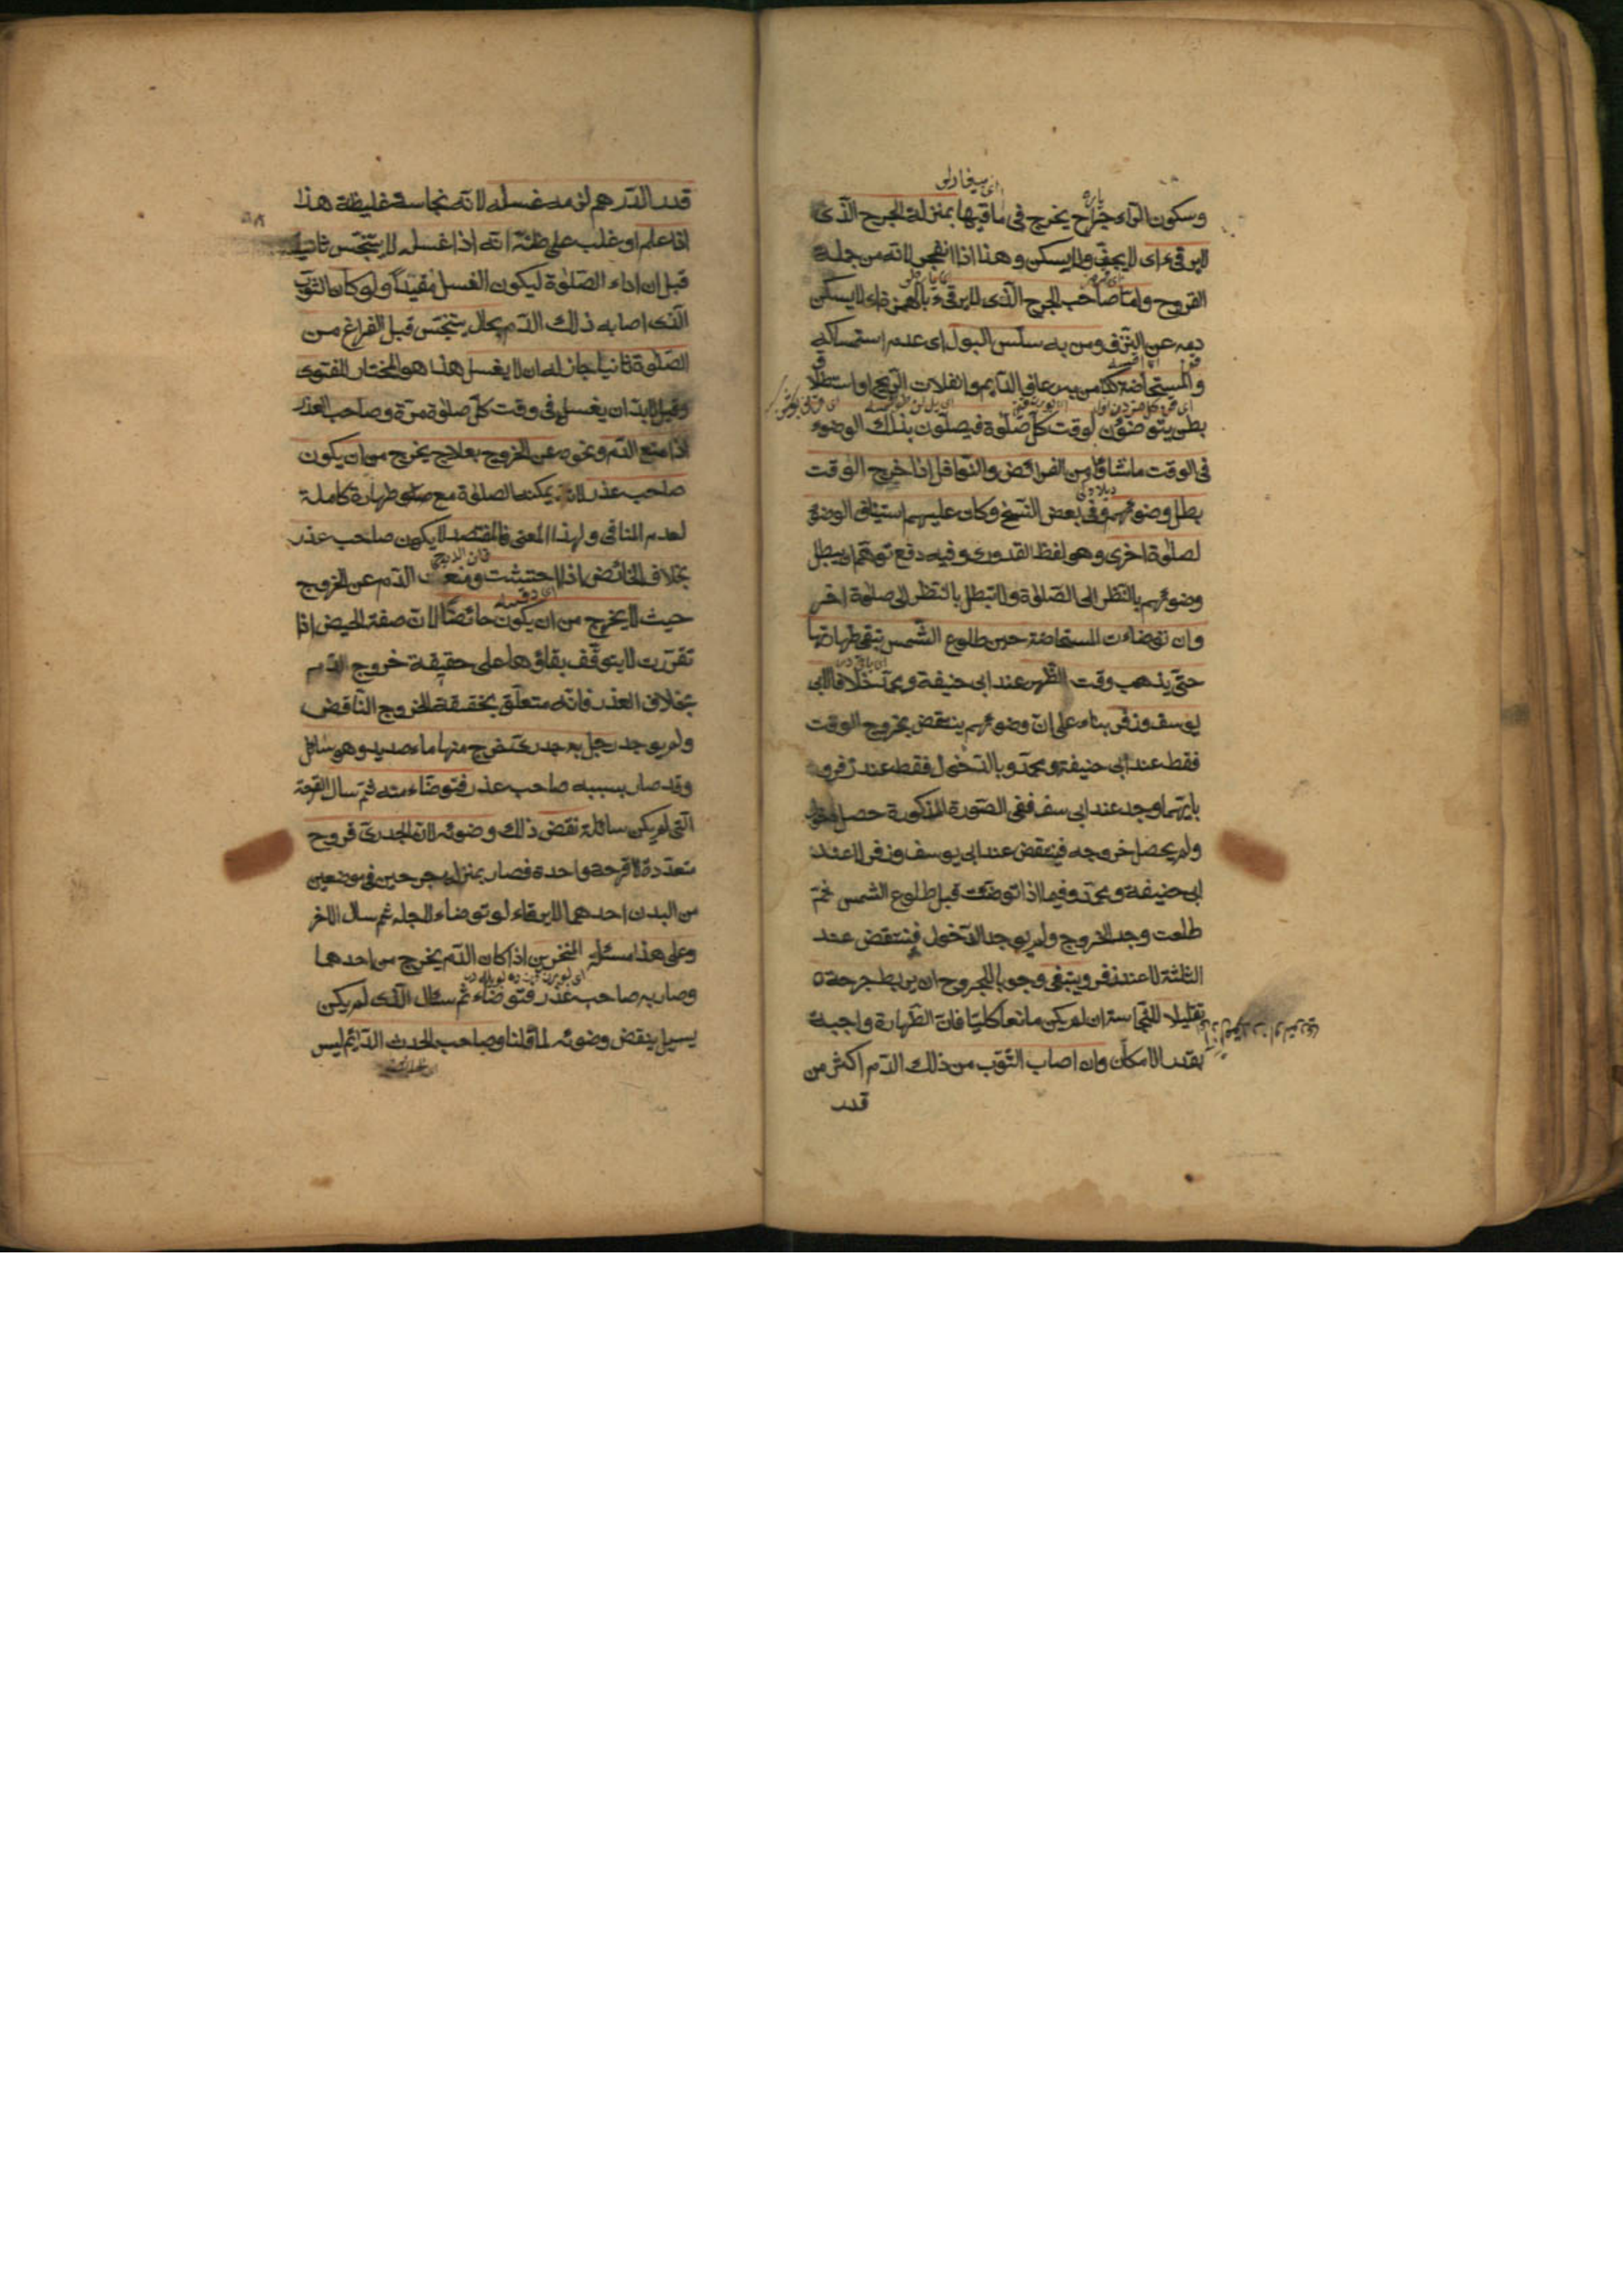 وسكون الراء جراح يخرج في ماقيها بمنزلة الجرح الذى
لايرقىء اى لايجف ولايسكن وهذا اذا انفجر لانه من جملة
القروح واما صاحب الجرح الذى لايرقىء بالهمزة اى لايسكن
دمه عن النزف ومن به سلس البول اى عدم استمساكه
والمستحاضة كمن به رعاف الدايم وانفلات الريح او استطلاق
بطن يتوضؤن لوقت كل صلوة فيصلون بذلك الوضوء
فى الوقت ماشاؤا من الفرائض والنوافل اذا خرج الوقت
بطل وضوئهم وفى بعض النسخ وكان عليهم استيناف الوضوء
لصلوة اخرى وهو لفظ القدورى وفيه دفع توهم ان يبطل
وضوئهم بالنظر الى الصلوة ولاتبطل بالنظر الى صلوة اخر
وان توضاءت المستحاضة حين طلوع الشمس تبقى طهارتها
حتى يذهب وقت الظهر عند ابى حنيفة ومحمد خلافا لابى
يوسف وزفر بناء على ان وضوئهم ينتقض بخروج الوقت
فقط عند ابى حنيفة ومحمد وبالدخول فقط عند زفر و
بايهما وجد عند ابى سف ففى الصورة المذكورة حصل الدخول
ولم يحصل خروجه فينتقض عند ابى يوسف وزفر لاعند
ابى حنيفة ومحمد وفيما اذا توضئت قبل طلوع الشمس ثم
طلعت وجد الخروج ولم يوجد الدخول فينتقض عند
الثلثة لاعند زفر وينبغى وجوبا للمجروح ان يربط جرحه
تقليلا للنجاسة ان لم يكن مانعا كليا فان الطهارة واجبة
بقدر الامكان وان اصاب الثوب من ذلك الدم اكثر من
قدر
قدر الدرهم لزمه غسله لانه نجاسة غليظة هذا
اذا علم او غلب على ظنه انه اذا غسله لايتنجس ثانيا
قبل ان اداء الصلوة ليكون الغسل مفيدا ولو كان الثوب
الذى اصابه ذلك الدم بحال يتنجس قبل الفراغ من
الصلوة ثانيا جاز له ان لايغسل هذا هو المختار للفتوى
وقيل لابد ان يغسل فى وقت كل صلوة مرة وصاحب العذر
اذا منع الدم ونحوه عن الخروج بعلاج يخرج من ان يكون
صاحب عذر لانه يمكنه الصلوة مع طهارة كاملة
لعدم المنافى ولهذا المعنى فالمفتصد لايكون صاحب عذر
بخلاف الحائض اذا احتشت ومنعت الدم عن الخروج
حيث لايخرج من ان يكون حائضا لان صفة الحيض اذا
تقررت لايتوقف بقاؤها على حقيقة خروج الدم
بخلاف العذر فانه متعلق بحقيقة الخروج الناقض
ولو يوجد رجل به جدرى خرج منها ماء صديد وهو سائل
وقد صار بسببه صاحب عذر فتوضاء منه ثم سال القرحة
التى لم يكن سائلة نقض ذلك وضوئه لان الجدرى قروح
متعددة لاقرحة واحدة فصار بمنزلة جرحين فى موضعين
من البدن احدهما لايرقاء لو توضاء لاجله ثم سال الاخر
وعلى هذا مسئلة المنخرين اذا كان الدم يخرج من احدهما
وصار به صاحب عذر فتوضاء ثم سال الذى لم يكن
يسيل ينقض وضوئه لما قلنا وصاحب الحدث الدائم ليس